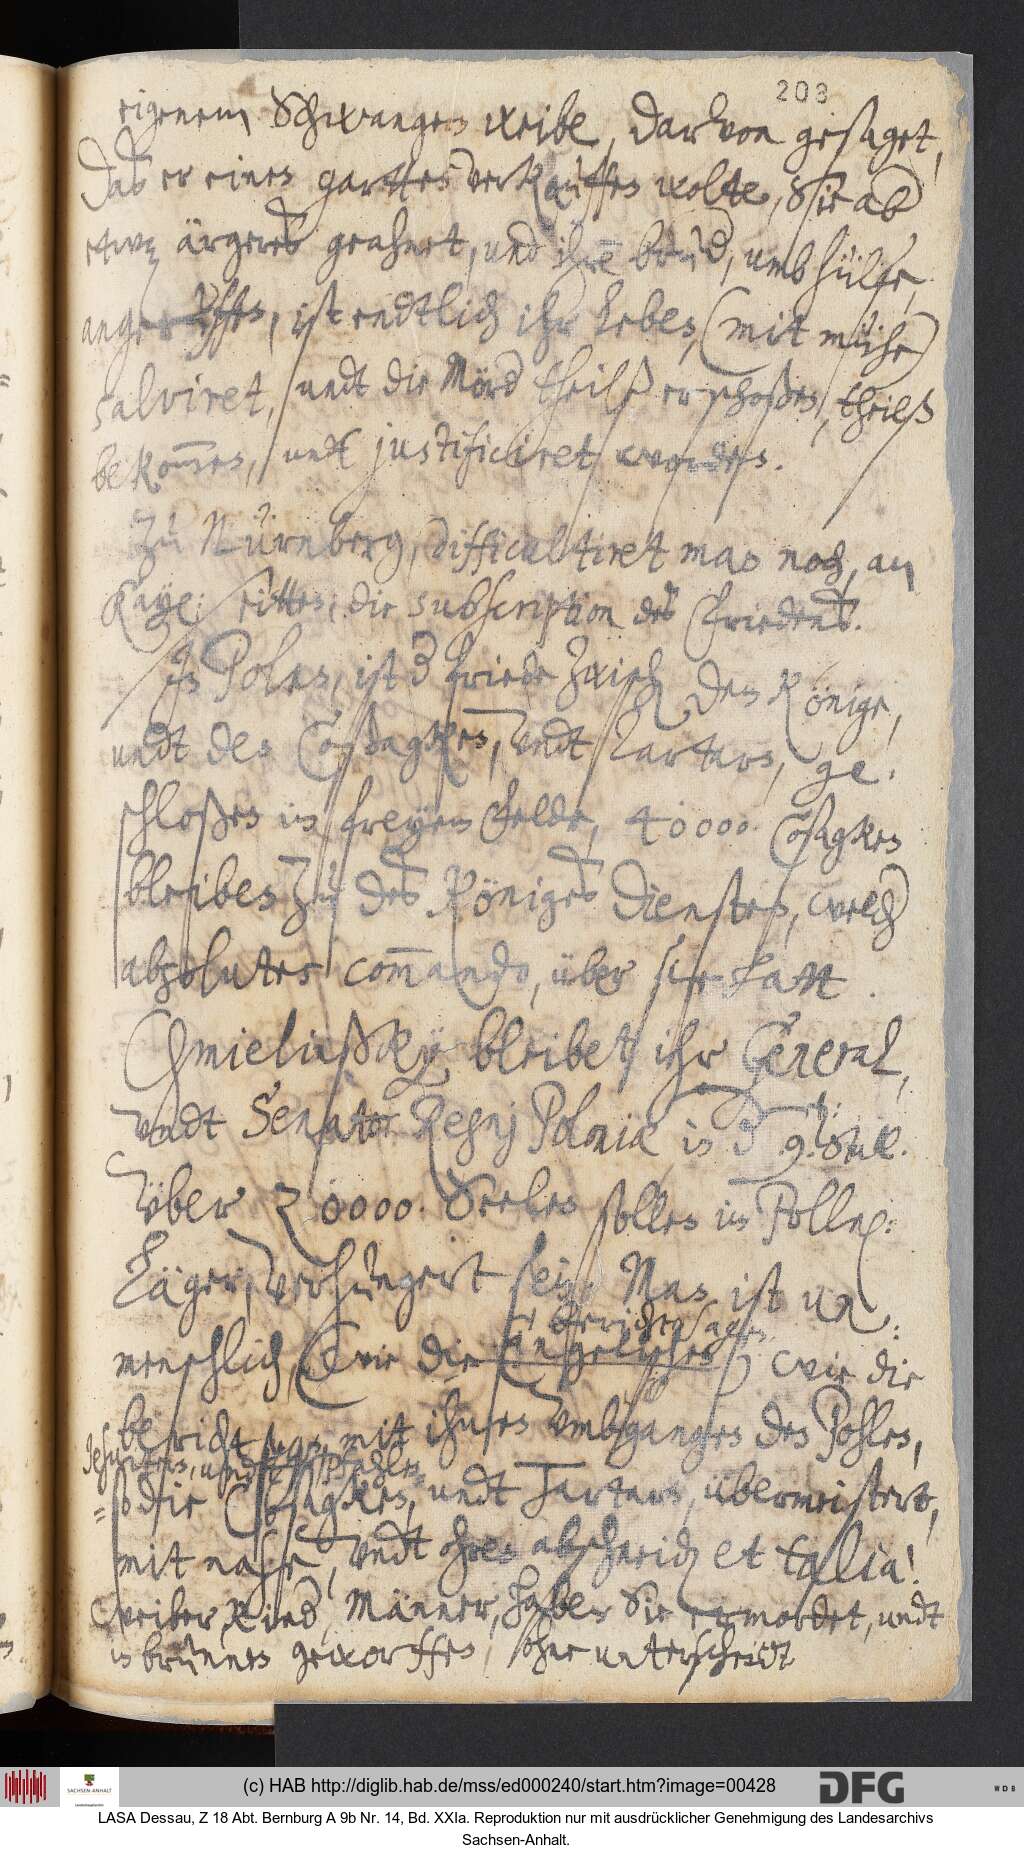 203
eigenem Schwangern weibe, darvon gesaget,
das er einen gartten verkauffen wolte, Sie ab
etwaz ärgeres geahnet, und ihre brüd, umb hülfe,
angeruffen, ist endtlich ihr leben, (mit mühe)
salviret, undt die Mörd theilß erschoßen, theilß
bekom̅en, undt justificiret worden.
Zu Nürnberg, difficultiret man noch, an
Kayß: seitten, die subscription des Friedens.
In Polen, ist d friede zwisch den Könige,
undt den Cosagken, undt Tartern, ge¬
schloßen im freyen Felde, 40000. Cosagken
bleiben zu des Königes diensten, welch
absolutes com̅ando, über sie hatt.
Chmielinßky bleibet ihr General,
undt Senator Regnj Poloniæ in
Über 20000. Seelen sollen im Polln:
Läger, verhungert sein. Man ist un¬
menschlich (wie die berichte sagen) wie die
bericht sagen, mit ihnen umbgangen den Pohlen,
so die Cosagken, undt Tartern, übermeistert,
mit nasen, undt ohren abschneid et talia!
Weiber, Kind, Männer, haben Sie ermordet, undt
in brunnen geworffen, ohne unterscheidt
(c) HAB http://diglib.hab.de/mss/ed000240/start.htm?image=00428
SACHSEN-ANHALT
DFG
WDB
LASA Dessau, Z 18 Abt. Bernburg A 9b Nr. 14, Bd. XXIa. Reproduktion nur mit ausdrücklicher Genehmigung des Landesarchivs
Sachsen-Anhalt.